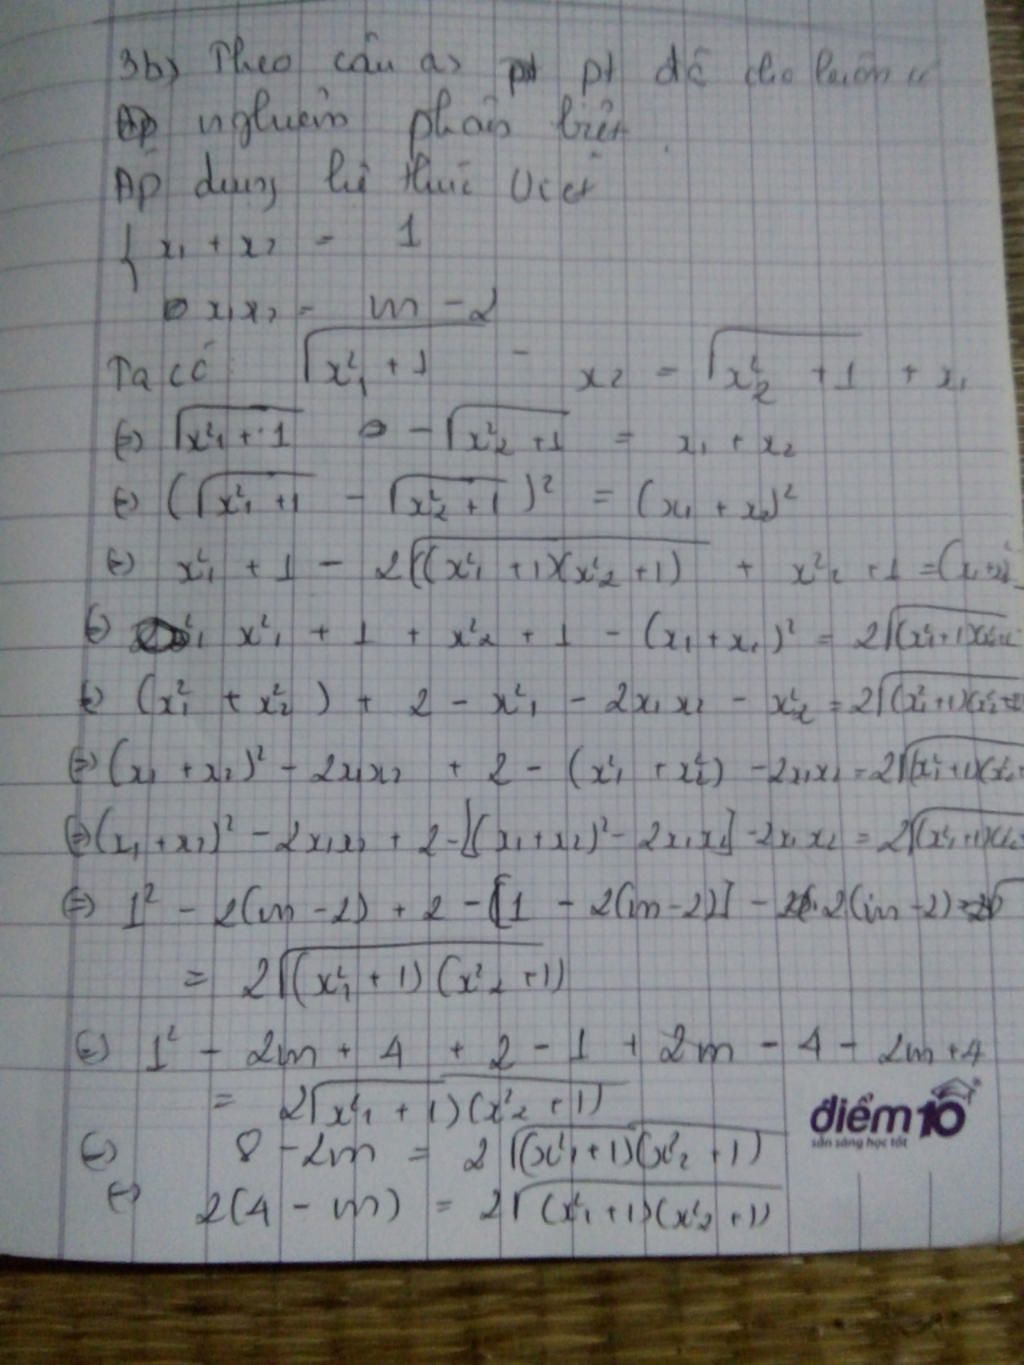 3b) Theo câu a) pt đã cho luôn có
nghiệm phân biệt.
Áp dụng hệ thức Viét
{ x₁ + x₂ = 1
x₁x₂ = m - 2
Ta có √(x₁² + 1) - x₂ = √(x₂² + 1) + x₁
(=) √(x₁² + 1) - √(x₂² + 1) = x₁ + x₂
(=) (√(x₁² + 1) - √(x₂² + 1))² = (x₁ + x₂)²
(=) x₁² + 1 - 2√((x₁² + 1)(x₂² + 1)) + x₂² + 1 = (x₁+x₂)²
(=) x₁² + 1 + x₂² + 1 - (x₁ + x₂)² = 2√((x₁²+1)(x₂²+1
(=) (x₁² + x₂²) + 2 - x₁² - 2x₁x₂ - x₂² = 2√((x₁²+1)(x₂²+1
(=) (x₁ + x₂)² - 2x₁x₂ + 2 - (x₁² + x₂²) - 2x₁x₂ = 2√((x₁²+1)(x₂²+
(=) (x₁ + x₂)² - 2x₁x₂ + 2 - [(x₁+x₂)² - 2x₁x₂] - 2x₁x₂ = 2√((x₁²+1)(x₂²
(=) 1² - 2(m-2) + 2 - [1 - 2(m-2)] - 2(m-2)
= 2√((x₁² + 1)(x₂² + 1))
(=) 1² - 2m + 4 + 2 - 1 + 2m - 4 - 2m + 4
= 2√(x₁² + 1)(x₂² + 1)
(=) 8 - 2m = 2√((x₁² + 1)(x₂² + 1))
(=) 2(4 - m) = 2√((x₁² + 1)(x₂² + 1))
điểm10
sẵn sàng học tốt